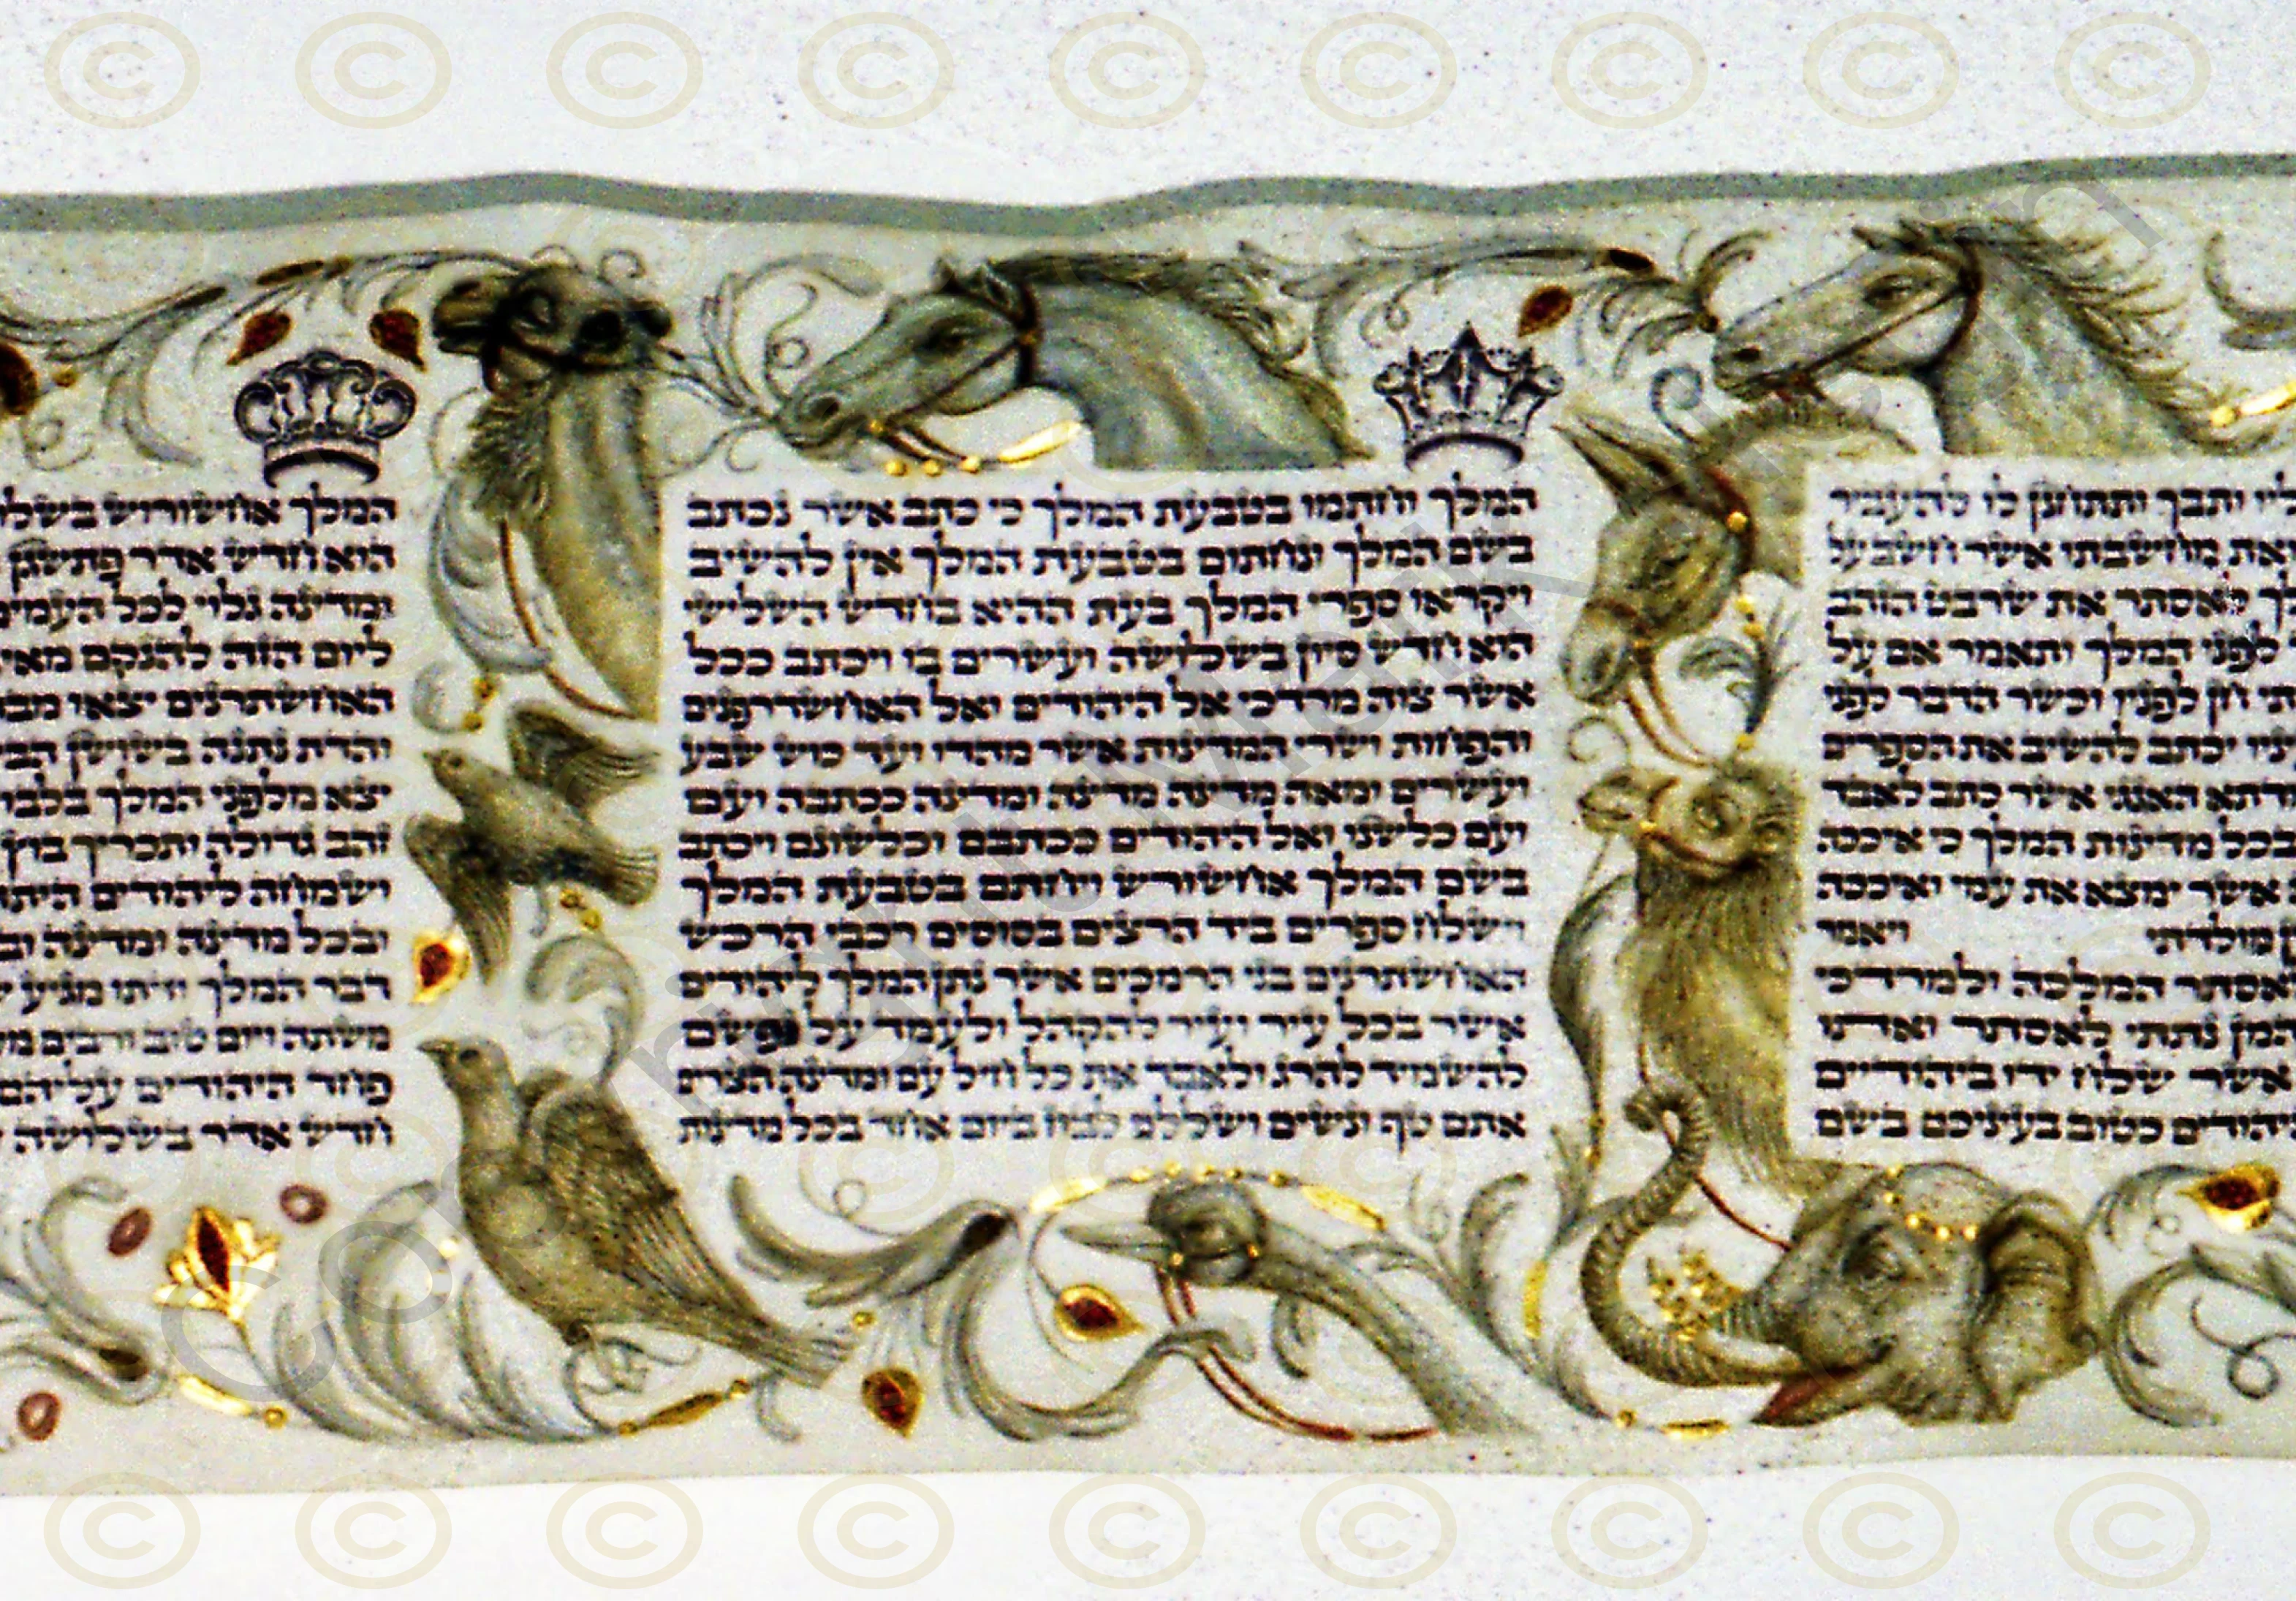 ליו ותבך ותתחנן לו להעביר
את מחשבתו אשר חשב על
לאסתר את שרבט הזהב
לפני המלך ותאמר אם על
תי חן לפניו וכשר הדבר לפני
ניו יכתב להשיב את הספרים
דתא האגגי אשר כתב לאבד
בכל מדינות המלך כי איככה
אשר ימצא את עמי ואיככה
מולדתי ויאמר
אסתר המלכה ולמרדכי
המן נתתי לאסתר ואתו
אשר שלח ידו ביהודיים
יהודים כטוב בעיניכם בשם
המלך וחתמו בטבעת המלך כי כתב אשר נכתב
בשם המלך ונחתום בטבעת המלך אין להשיב
ויקראו ספרי המלך בעת ההיא בחדש השלישי
הוא חדש סיון בשלושה ועשרים בו ויכתב ככל
אשר צוה מרדכי אל היהודים ואל האחשדרפנים
והפחות ושרי המדינות אשר מהדו ועד כוש שבע
ועשרים ומאה מדינה מדינה ומדינה ככתבה ועם
ועם כלשנו ואל היהודים ככתבם וכלשונם ויכתב
בשם המלך אחשורש ויחתם בטבעת המלך
וישלח ספרים ביד הרצים בסוסים רכבי הרכש
האחשתרנים בני הרמכים אשר נתן המלך ליהודים
אשר בכל עיר ועיר להקהל ולעמד על נפשם
להשמיד להרג ולאבד את כל חיל עם ומדינה הצרים
אתם טף ונשים ושללם לבוז ביום אחד בכל מדינות
המלך אחשורוש בשלו
הוא חדש אדר פתשגן
ומדינה גלוי לכל העמים
ליום הזה להנקם מאי
האחשתרנים יצאו מבה
והדת נתנה בשושן הבי
יצא מלפני המלך בלבו
זהב גדולה ותכריך בוץ
ושמחה ליהודים היתה
ובכל מדינה ומדינה וב
דבר המלך ודתו מגיע
משתה ויום טוב ורבים מע
פחד היהודים עליהם
חדש אדר בשלושה